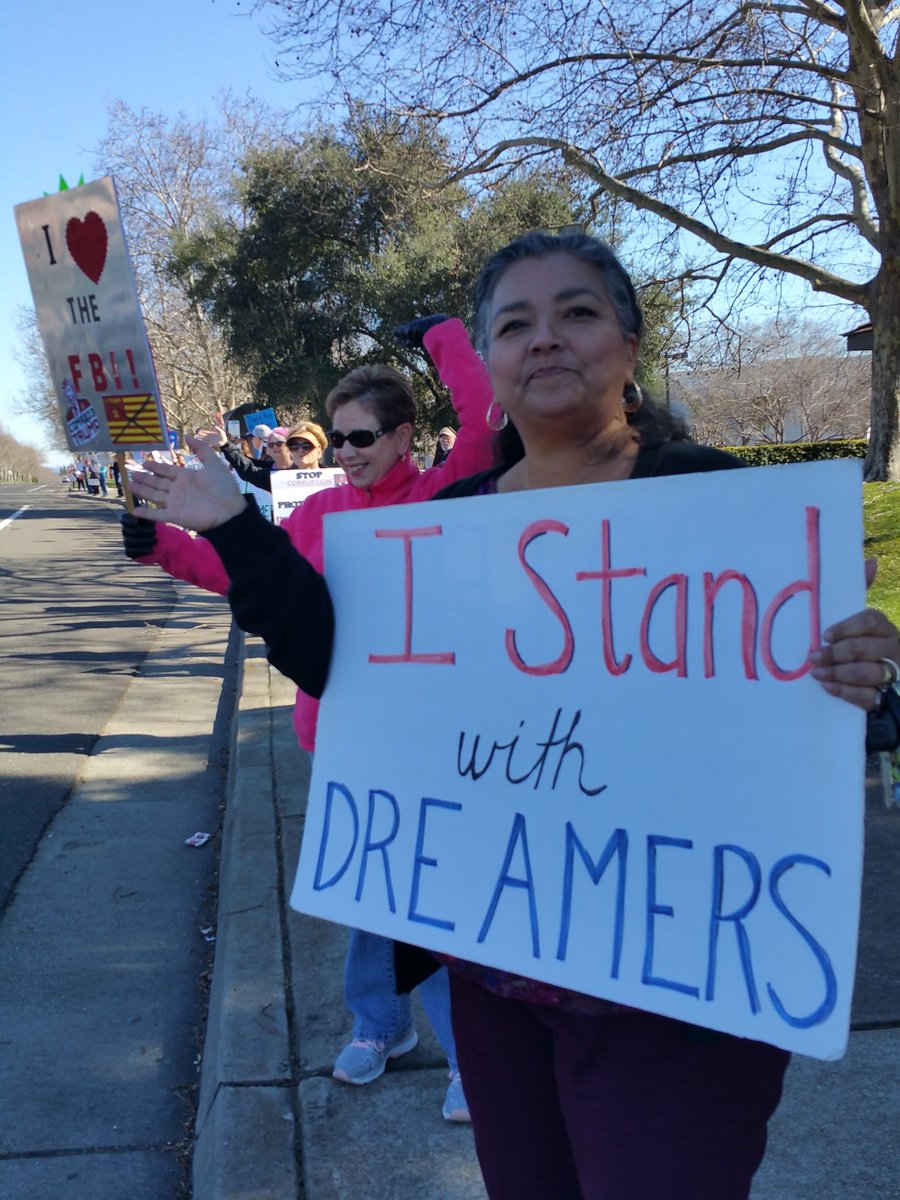 I
THE
FBI!
STOP
CORRUPTION
I Stand
with
DREAMERS